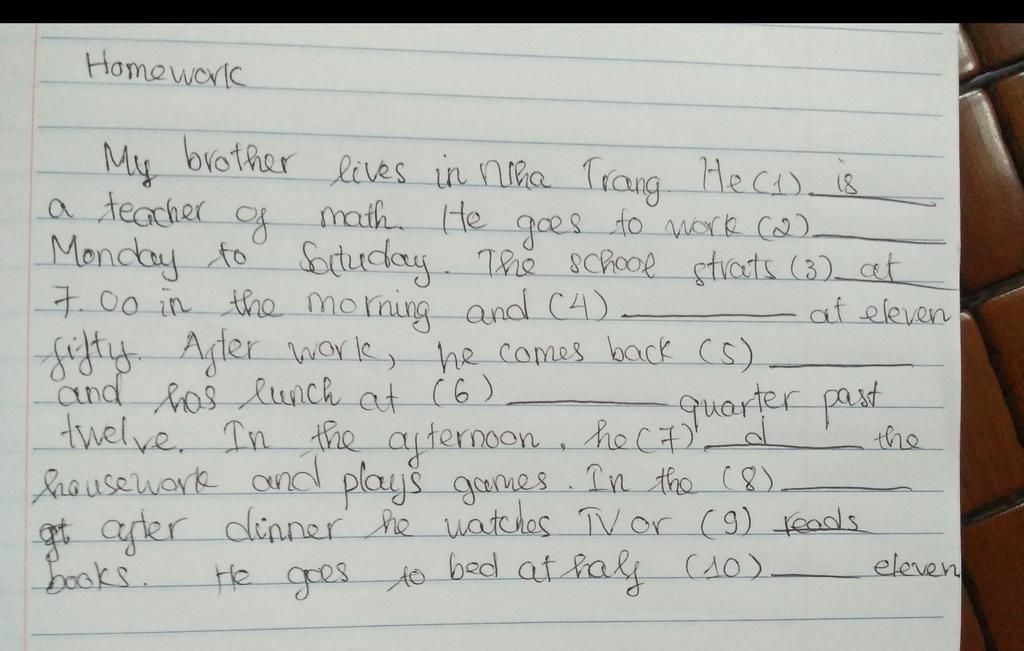 Homework
My brother lives in Nha Trang. He (1) is
a teacher of math. He goes to work (2) ______
Monday to Satuday. The school strats (3) at
7.00 in the morning and (4) ______ at eleven
fifty. After work, he comes back (5) ______
and has lunch at (6) ______ quarter past
twelve. In the afternoon, he (7) d the
housework and plays games. In the (8) ______
after dinner he watches TV or (9) reads
books. He goes to bed at half (10) ______ eleven